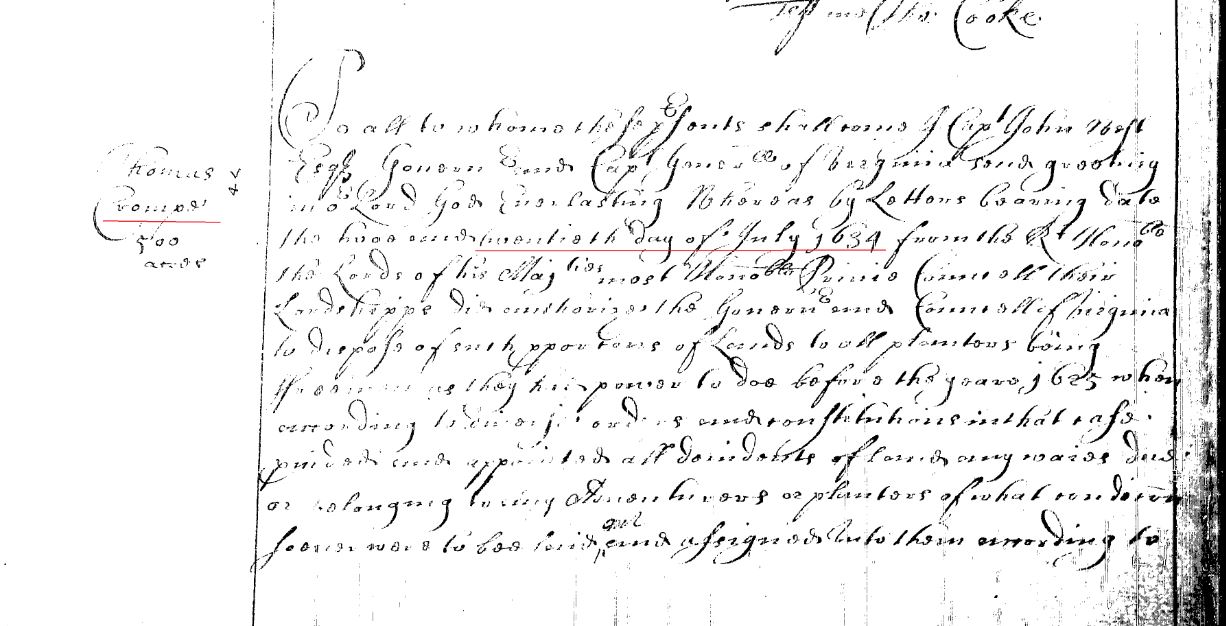 Test me Tho: Cooke
Thomas
Crompe
500
acres
To all to whome these psents shall come I Capt John West
Esqr Governr and Capt Generall of Virginia send greeting
in or Lord God Everlasting Whereas by Letters bearing date
the two and twentieth day of July 1634 from the Rt Honoble
the Lords of his Majties most Honoble Privie Councell their
Lordshipps did authorize the Governr and Councell of Virginia
to dispose of such pportons of Lands to all planters being
ffreemen as they had power to doe before the yeare 1625 when
according to divers orders and constitutions in that case
pvided and appointed all devidents of land any waies due
or belonging to any Adventurers or planters of what condicon
soever were to bee laid out and assigned unto them according to